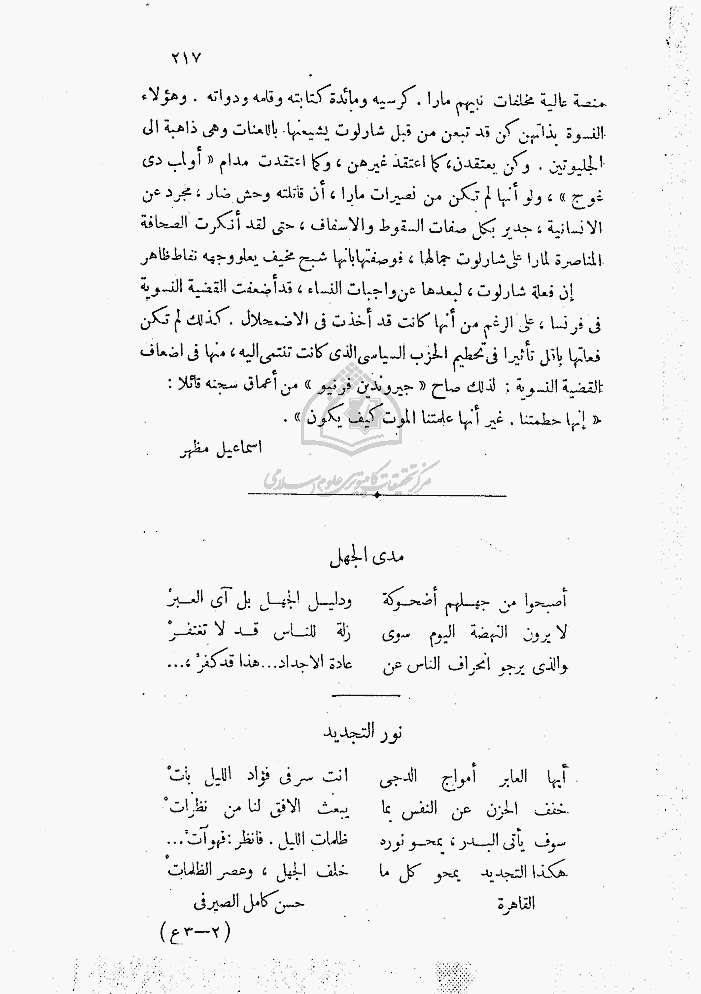 ٢١٧
منصة عالية مخلفات نبيهم مارا . كرسيه ومائدة كتابته وقلمه ودواته . وهؤلاء
النسوة بذاتهن كن قد تبعن من قبل شارلوت يشيعنها باللعنات وهى ذاهبة الى
الجليوتين . وكن يعتقدن ، كما اعتقد غيرهن ، وكما اعتقدت مدام « أولمب دى
غوج » ، ولو أنها لم تكن من نصيرات مارا ، أن قاتلته وحش ضار ، مجرد عن
الانسانية ، جدير بكل صفات السقوط والاسفاف ، حتى لقد أنكرت الصحافة
المناصرة لمارا على شارلوت جمالها ، فوصفتها بأنها شبح مخيف يعلو وجهه نفاط ظاهر
إن فعلة شارلوت ، لبعدها عن واجبات النساء ، قد أضعفت القضية النسوية
فى فرنسا ، على الرغم من أنها كانت قد أخذت فى الاضمحلال . كذلك لم تكن
فعلتها بأقل تأثيرا فى تحطيم الحزب السياسى الذى كانت تنتمى اليه ، منها فى اضعاف
القضية النسوية : لذلك صاح « جيروندين فرنيو » من أعماق سجنه قائلا :
« إنها حطمتنا . غير أنها علمتنا الموت كيف يكون » .
اسماعيل مظهر
مركز تحقيقات كامپيوترى علوم اسلامى
مدى الجهل
أصبحوا من جهلهم أضحوكة ودليل الجهل بل آى العبرْ
لا يرون النهضة اليوم سوى زلة للناس قد لا تغتفرْ
والذى يرجو انحراف الناس عن عادة الاجداد... هذا قد كفرْ ،...
نور التجديد
أيها العابر أمواج الدجى انت سر فى فؤاد الليل باتْ
خفف الحزن عن النفس بما يبعث الافق لنا من نظراتْ
سوف يأتى البدر ، يمحو نوره ظلمات الليل . فانظر : فهو آتْ...
هكذا التجديد يمحو كل ما خلف الجهل ، وعصر الظلماتْ
القاهرة حسن كامل الصيرفى
(٢—٣ع)